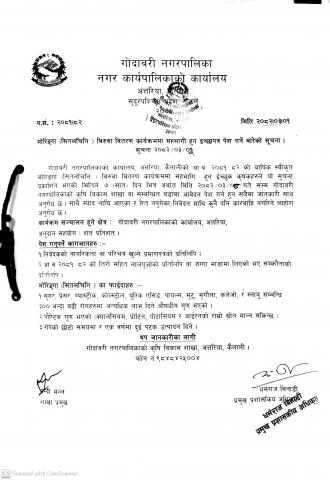 गोदावरी नगरपालिका
नगर कार्यपालिकाको कार्यालय
अत्तरिया, कैलाली
सुदूरपश्चिम प्रदेश, नेपाल
प.सं.: २०८१/८२
मिति २०८२/०३/०१
मोरिङ्गा (सितलचिनि) बिरुवा वितरण कार्यक्रममा सहभागी हुन इच्छापत्र पेश गर्ने बारेको सूचना।
सूचना २०८२/०३/०१
गोदावरी नगरपालिकाको कार्यालय, अत्तरिया, कैलालीको आ.व. २०८१।८२ को वार्षिक स्वीकृत
मोरिङ्गा (सितलचिनि) बिरुवा वितरण कार्यक्रममा सहभागि हुन इच्छुक कृषकहरुले यो सूचना
प्रकाशित भएको मितिले ७ (सात) दिन भित्र अर्थात मिति २०८२/०३/ गते सम्म गोदावरी
नगरपालिकाको कृषि विकास शाखा वा सम्बन्धित वडामा आवेदन पेश गर्न हुन सबैमा जानकारी साथ
अनुरोध छ। साथै म्याद नाघि आएका र रित नपुगेका निवेदन माथि कुनै पनि कारवाहि नगरिने व्यहोरा
अनुरोध छ।
कार्यक्रम संचालन हुने क्षेत्र : गोदावरी नगरपालिकाको कार्यालय, अत्तरिया,
अनुदान सहयोग : शत प्रतिशत।
पेश गर्नुपर्ने कागजातहरु:-
१.निवेदकको नागरिकता वा परिचय खुल्ने प्रमाणपत्रको प्रतिलिपि।
२.आ.व २०८१।८२ को तिरो सहित लालपूर्जाको प्रतिलिपि वा जग्गा भाडामा लिएको भए सम्झौताको
प्रतिलिपि।
मोरिङ्गा (सितलचिनि) का फाईदाहरु:-
१.सुगर, प्रेसर ग्यास्ट्रीक, कोल्स्ट्रोल, युरिक एसिड, पायल्स, मुटु, मृगौला, कलेजो, र स्नायु सम्बन्धि
३०० भन्दा बढी रोगहरुमा अत्यधिक लाभ दिने औषधीय गुण भएको।
२.पौष्टिक गुण भएको क्याल्सियम, प्रोटिन, पोटासियम र आईरनको राम्रो स्रोत मान्न सकिन्छ।
३.रोपेको छोटो समयमा र एक वर्षमा दुई पटक उत्पादन दिने।
थप जानकारीका लागी
गोदावरी नगरपालिकाको कृषि विकास शाखा, अत्तरिया, कैलाली।
फोन नं.९८४८४२५००४
मल्ल
शाखा प्रमुख
धर्मराज त्रिपाठी
प्रमुख प्रशासकीय अधिकृत
धर्मराज त्रिपाठी
प्रमुख प्रशासकीय अधिकृत
Scanned with CamScanner